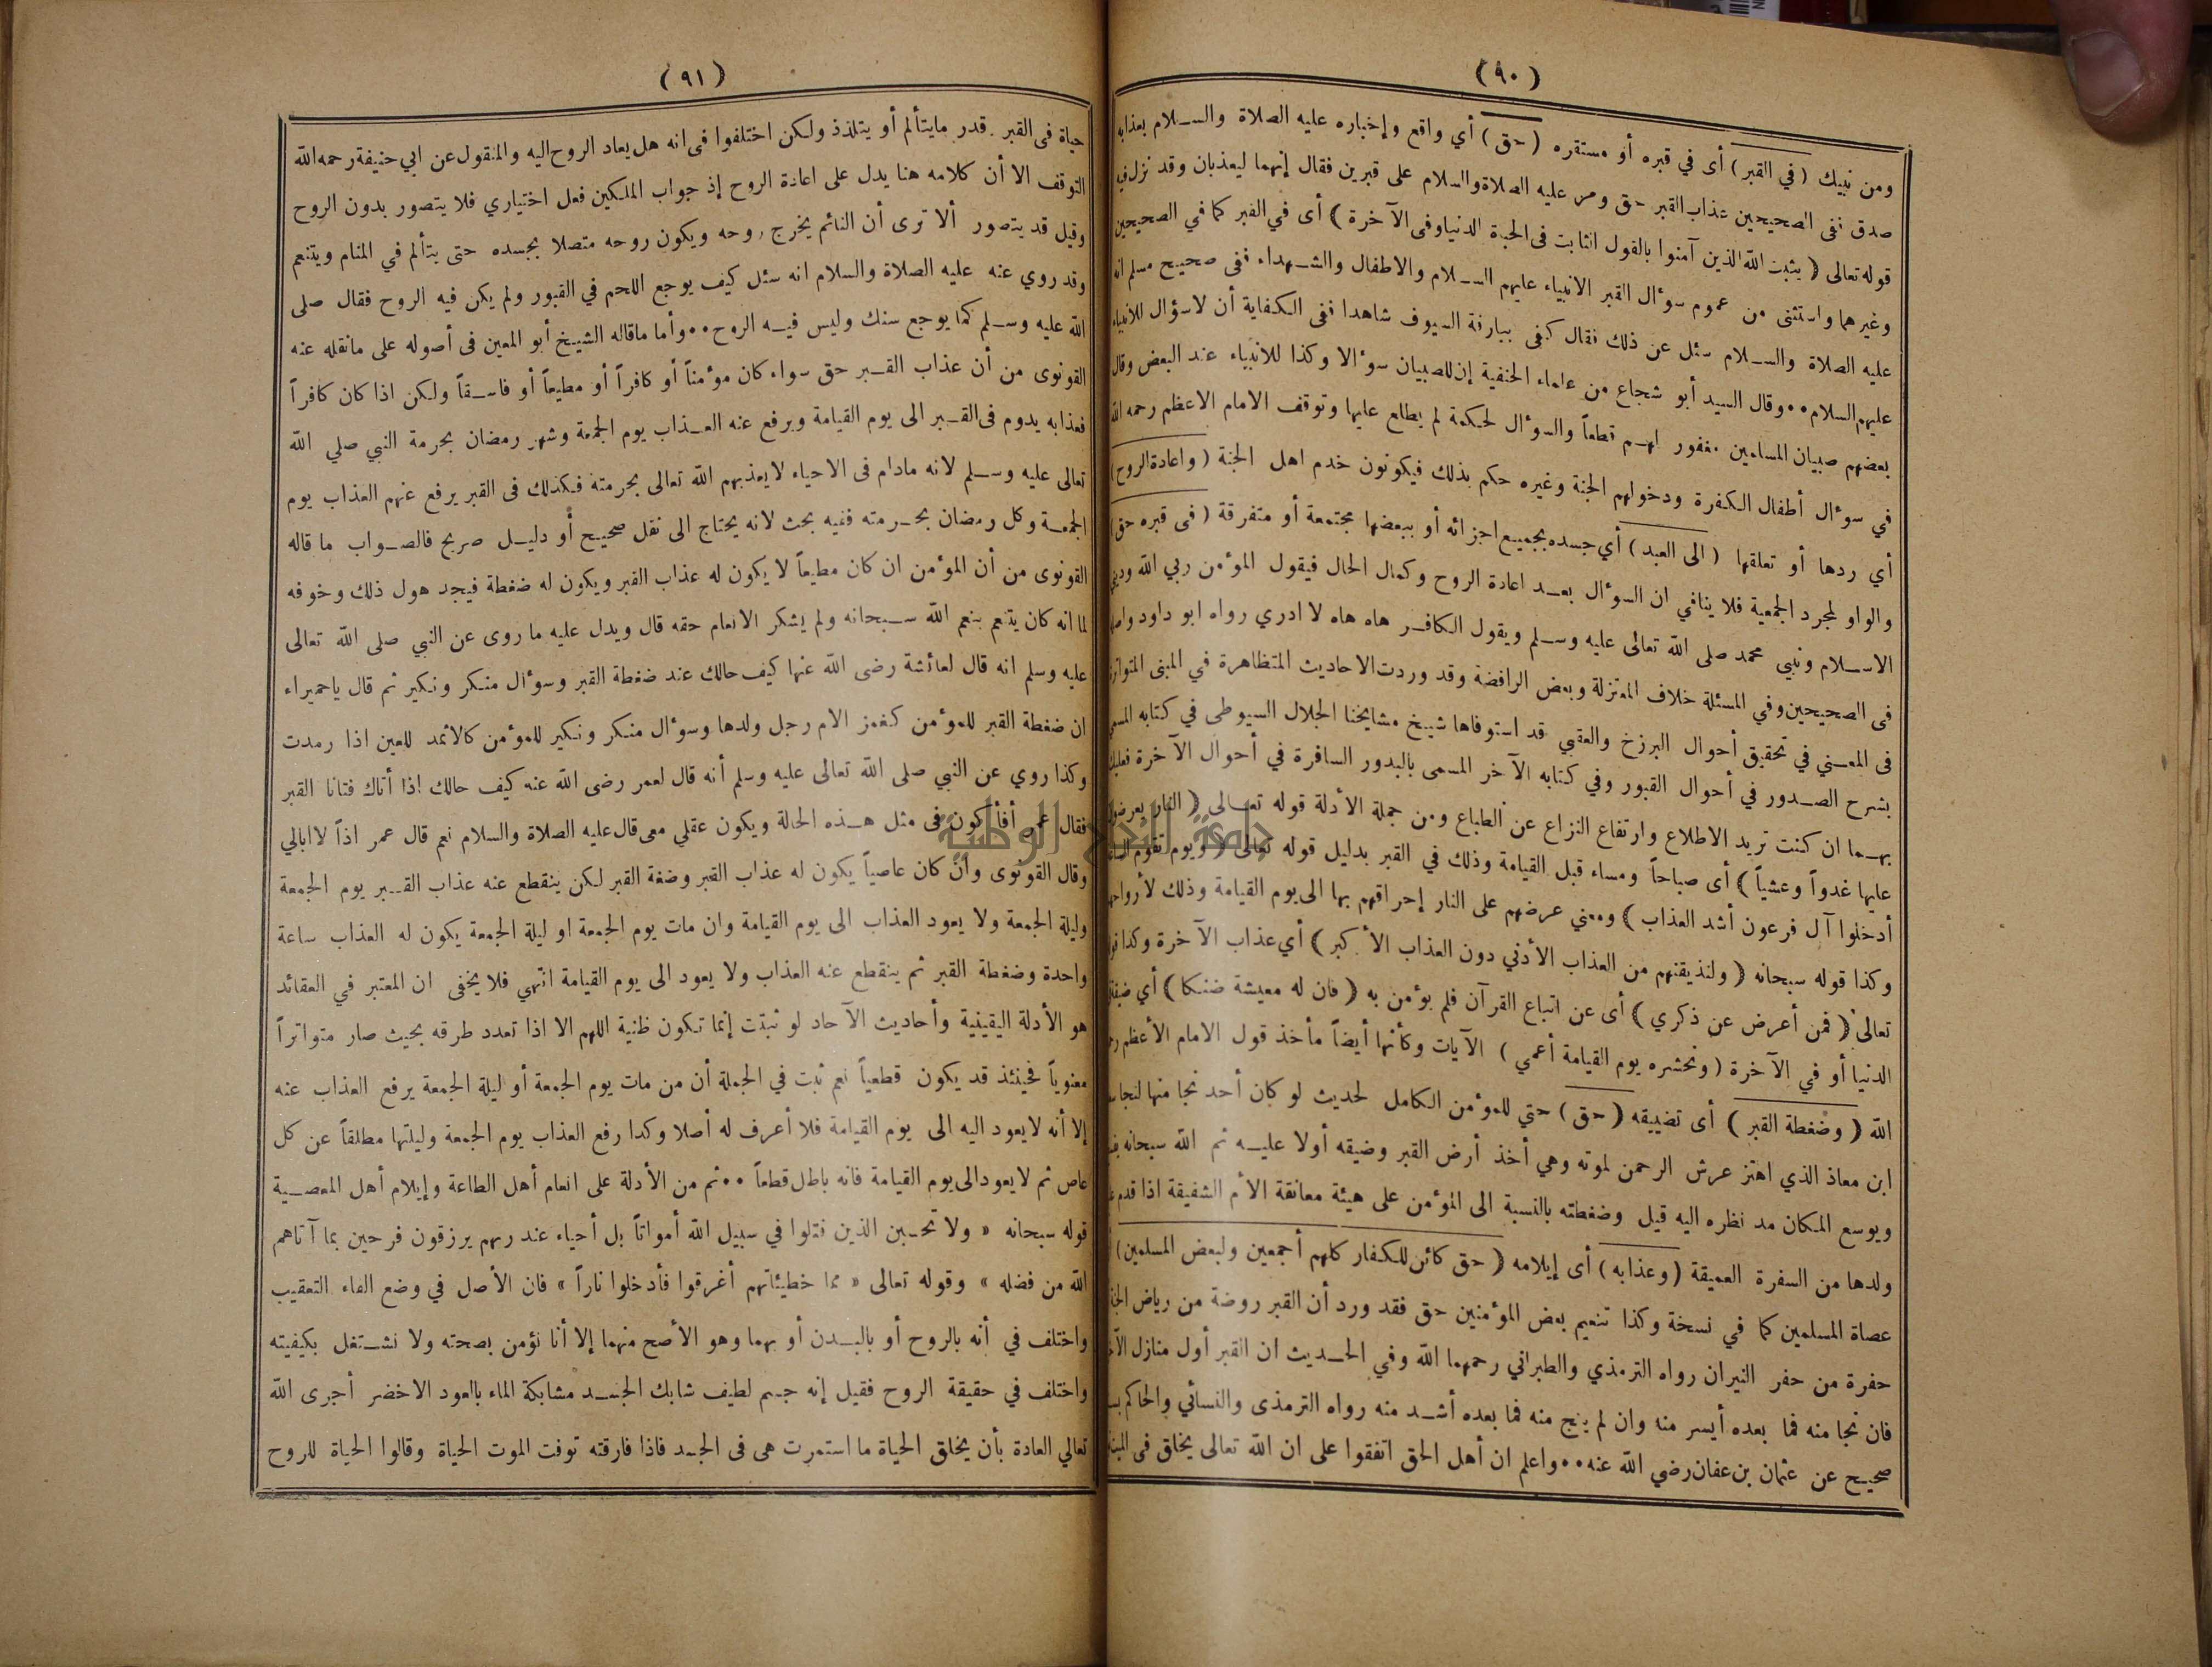 (٩٠)
ومن نبيك (في القبر) أى في قبره أو مستقره (حق) أي واقع وإخباره عليه الصلاة والسلام بعذابه
صدق ففى الصحيحين عذاب القبر حق ومر عليه الصلاة والسلام على قبرين فقال إنهما ليعذبان وقد نزل في
قوله تعالى (يثبت الله الذين آمنوا بالقول الثابت فى الحياة الدنيا وفى الآخرة) أى في القبر كما في الصحيحين
وغيرهما واستثنى من عموم سؤال القبر الانبياء عليهم السلام والاطفال والشهداء ففى صحيح مسلم انه
عليه الصلاة والسلام سئل عن ذلك فقال كفى ببارقة السيوف شاهدا ففى الكفاية أن لا سؤال للانبياء
عليهم السلام ٠٠ وقال السيد أبو شجاع من علماء الحنفية إن للصبيان سؤالا وكذا للانبياء عند البعض وقال
بعضهم صبيان المسلمين مغفور لهم قطعاً والسؤال لحكمة لم يطلع عليها وتوقف الامام الاعظم رحمه الله
في سؤال أطفال الكفرة ودخولهم الجنة وغيره حكم بذلك فيكونون خدم اهل الجنة (واعادة الروح)
أي ردها أو تعلقها (الى العبد) أي جسده بجميع اجزائه أو ببعضها مجتمعة أو متفرقة (فى قبره حق)
والواو لمجرد الجمعية فلا ينافي ان السؤال بعد اعادة الروح وكمال الحال فيقول المؤمن ربي الله وديني
الاسلام ونبيى محمد صلى الله تعالى عليه وسلم ويقول الكافر هاه هاه لا ادري رواه ابو داود واصله
فى الصحيحين وفي المسئلة خلاف المعتزلة وبعض الرافضة وقد وردت الاحاديث المتظاهرة في المبنى المتواترة
فى المعنى في تحقيق أحوال البرزخ والعقبى قد استوفاها شيخ مشايخنا الجلال السيوطى في كتابه المسمى
بشرح الصدور في أحوال القبور وفي كتابه الآخر المسمى بالبدور السافرة في أحوال الآخرة فعليك
بهما ان كنت تريد الاطلاع وارتفاع النزاع عن الطباع ومن جملة الأدلة قوله تعالى (النار يعرضون
عليها غدواً وعشياً) أى صباحاً ومساء قبل القيامة وذلك في القبر بدليل قوله تعالى (ويوم تقوم الساعة
أدخلوا آل فرعون أشد العذاب) ومعني عرضهم على النار إحراقهم بها الى يوم القيامة وذلك لأرواحهم
وكذا قوله سبحانه (ولنذيقنهم من العذاب الأدني دون العذاب الأكبر) أي عذاب الآخرة وكذا قوله
تعالى (فمن أعرض عن ذكري) أى عن اتباع القرآن فلم يؤمن به (فان له معيشة ضنكا) أي ضيقة
الدنيا أو في الآخرة (ونحشره يوم القيامة أعمي) الآيات وكأنها أيضاً مأخذ قول الامام الأعظم
الله (وضغطة القبر) أى تضييقه (حق) حتي للمؤمن الكامل لحديث لو كان أحد نجا منها لنجا
ابن معاذ الذي اهتز عرش الرحمن لموته وهي أخذ أرض القبر وضيقه أولا عليه ثم الله سبحانه
ويوسع المكان مد نظره اليه قيل وضغطته بالنسبة الى المؤمن على هيئة معانقة الأم الشفيقة اذا قدم
ولدها من السفرة العميقة (وعذابه) أى إيلامه (حق كائن للكفار كلهم أجمعين ولبعض المسلمين)
عصاة المسلمين كما في نسخة وكذا تنعيم بعض المؤمنين حق فقد ورد أن القبر روضة من رياض الجنة
حفرة من حفر النيران رواه الترمذي والطبراني رحمهما الله وفي الحديث ان القبر أول منازل
فان نجا منه فما بعده أيسر منه وان لم ينج منه فما بعده أشد منه رواه الترمذى والنسائي والحاكم
صحيح عن عثمان بن عفان رضي الله عنه ٠٠ واعلم ان أهل الحق اتفقوا على ان الله تعالى يخلق فى الميت
(٩١)
حياة فى القبر قدر مايتألم أو يتلذذ ولكن اختلفوا فى انه هل يعاد الروح اليه والمنقول عن ابي حنيفة رحمه الله
التوقف الا أن كلامه هنا يدل على اعادة الروح إذ جواب الملكين فعل اختياري فلا يتصور بدون الروح
وقيل قد يتصور ألا ترى أن النائم يخرج روحه ويكون روحه متصلا بجسده حتى يتألم في المنام ويتنعم
وقد روي عنه عليه الصلاة والسلام انه سئل كيف يوجع اللحم في القبور ولم يكن فيه الروح فقال صلى
الله عليه وسلم كما يوجع سنك وليس فيه الروح ٠٠ وأما ماقاله الشيخ أبو المعين فى أصوله على مانقله عنه
القونوى من أن عذاب القبر حق سواء كان مؤمناً أو كافراً أو مطيعاً أو فاسقاً ولكن اذا كان كافراً
فعذابه يدوم فى القبر الى يوم القيامة ويرفع عنه العذاب يوم الجمعة وشهر رمضان بحرمة النبي صلي الله
تعالى عليه وسلم لانه مادام فى الاحياء لايعذبهم الله تعالى بحرمته فكذلك فى القبر يرفع عنهم العذاب يوم
الجمعة وكل رمضان بحرمته ففيه بحث لانه يحتاج الى نقل صحيح أو دليل صريح فالصواب ما قاله
القونوى من أن المؤمن ان كان مطيعاً لا يكون له عذاب القبر ويكون له ضغطة فيجد هول ذلك وخوفه
لما انه كان يتنعم بنعم الله سبحانه ولم يشكر الانعام حقه قال ويدل عليه ما روى عن النبي صلى الله تعالى
عليه وسلم انه قال لعائشة رضى الله عنها كيف حالك عند ضغطة القبر وسؤال منكر ونكير ثم قال ياحميراء
ان ضغطة القبر للمؤمن كغمز الام رجل ولدها وسؤال منكر ونكير للمؤمن كالاثمد للعين اذا رمدت
وكذا روي عن النبي صلى الله تعالى عليه وسلم أنه قال لعمر رضى الله عنه كيف حالك اذا أتاك فتانا القبر
فقال عمر أفأكون فى مثل هذه الحالة ويكون عقلي معى قال عليه الصلاة والسلام نعم قال عمر اذاً لا ابالي
وقال القونوى وان كان عاصياً يكون له عذاب القبر وضغة القبر لكن ينقطع عنه عذاب القبر يوم الجمعة
وليلة الجمعة ولا يعود العذاب الى يوم القيامة وان مات يوم الجمعة او ليلة الجمعة يكون له العذاب ساعة
واحدة وضغطة القبر ثم ينقطع عنه العذاب ولا يعود الى يوم القيامة انتهي فلا يخفى ان المعتبر في العقائد
هو الأدلة اليقينية وأحاديث الآحاد لو ثبتت إنما تكون ظنية اللهم الا اذا تعدد طرقه بحيث صار متواتراً
معنوياً فحينئذ قد يكون قطعياً نعم ثبت في الجملة أن من مات يوم الجمعة أو ليلة الجمعة يرفع العذاب عنه
إلا أنه لايعود اليه الى يوم القيامة فلا أعرف له أصلا وكذا رفع العذاب يوم الجمعة وليلتها مطلقاً عن كل
عاص ثم لا يعود الى يوم القيامة فانه باطل قطعاً ٠٠ ثم من الأدلة على انعام أهل الطاعة وإيلام أهل المعصية
قوله سبحانه « ولا تحسبن الذين قتلوا في سبيل الله أمواتاً بل أحياء عند ربهم يرزقون فرحين بما آتاهم
الله من فضله » وقوله تعالى « مما خطيئاتهم أغرقوا فأدخلوا ناراً » فان الأصل في وضع الفاء التعقيب
واختلف في أنه بالروح أو بالبدن أو بهما وهو الأصح منهما إلا أنا نؤمن بصحته ولا نشتغل بكيفيته
واختلف في حقيقة الروح فقيل إنه جسم لطيف شابك الجسد مشابكة الماء بالعود الاخضر أجرى الله
تعالي العادة بأن يخلق الحياة ما استمرت هى فى الجسد فاذا فارقته توفت الموت الحياة وقالوا الحياة للروح
جامعة النجاح الوطنية